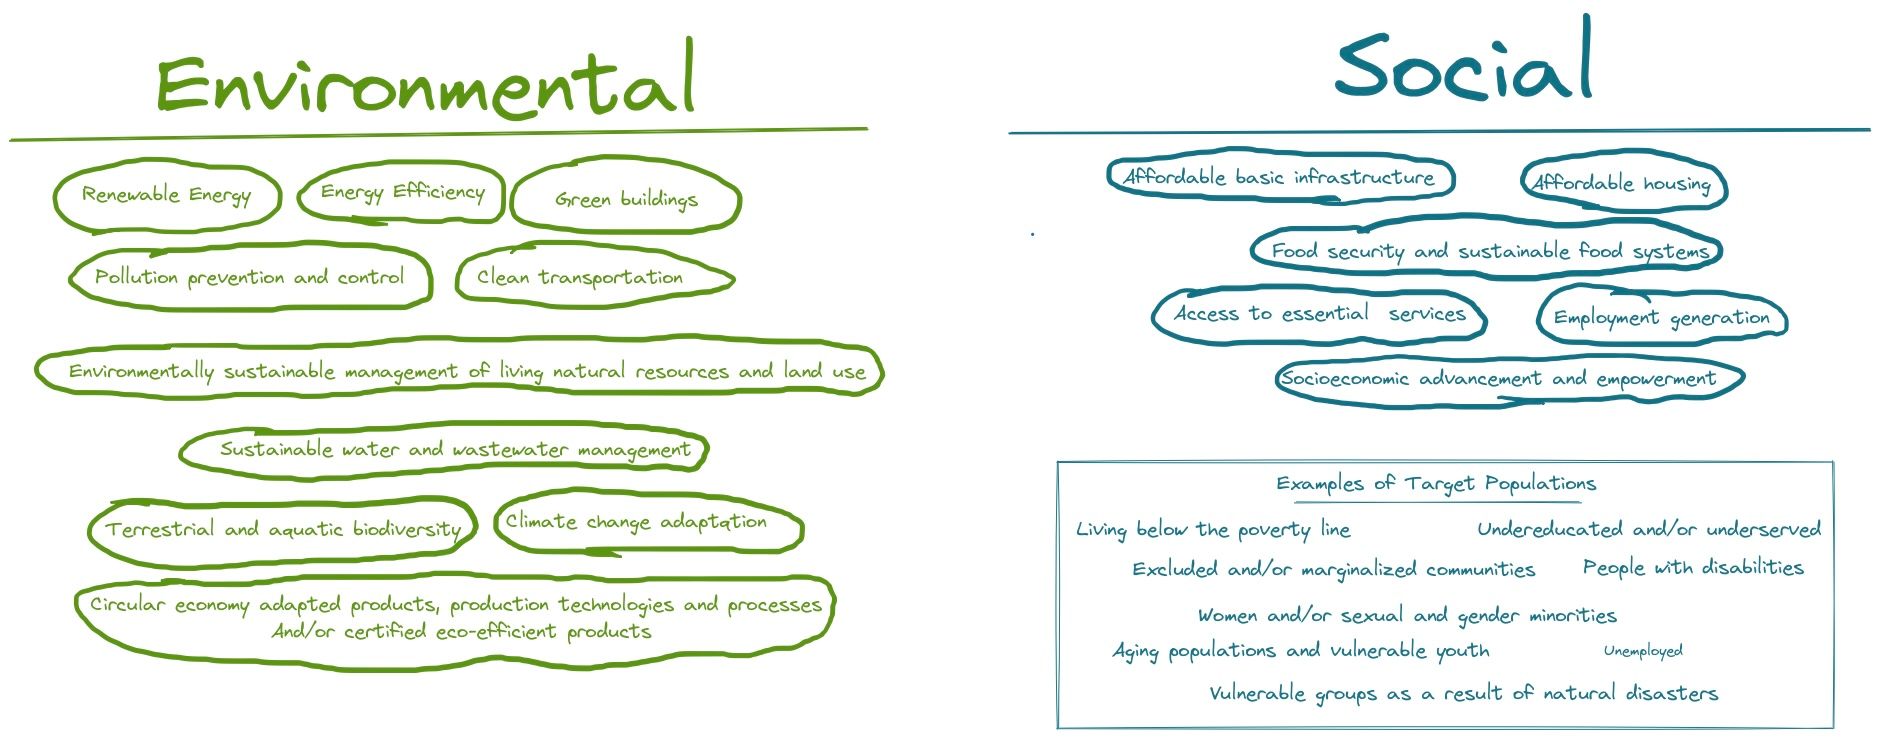 Environmental
Renewable Energy
Energy Efficiency
Green buildings
Pollution prevention and control
Clean transportation
Environmentally sustainable management of living natural resources and land use
Sustainable water and wastewater management
Terrestrial and aquatic biodiversity
Climate change adaptation
Circular economy adapted products, production technologies and processes
And/or certified eco-efficient products
Social
Affordable basic infrastructure
Affordable housing
Food security and sustainable food systems
Access to essential services
Employment generation
Socioeconomic advancement and empowerment
Examples of Target Populations
Living below the poverty line
Undereducated and/or underserved
Excluded and/or marginalized communities
People with disabilities
Women and/or sexual and gender minorities
Aging populations and vulnerable youth
Unemployed
Vulnerable groups as a result of natural disasters